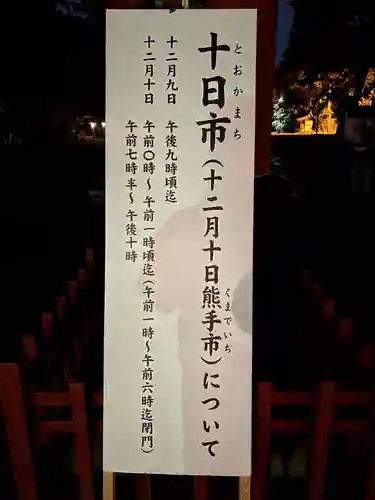 十日市(十二月十日熊手市)について
とおかまち
くまでいち
十二月九日 午後九時頃迄
十二月十日 午前〇時~午前一時頃迄(午前一時~午前六時迄閉門)
午前七時半~午後十時